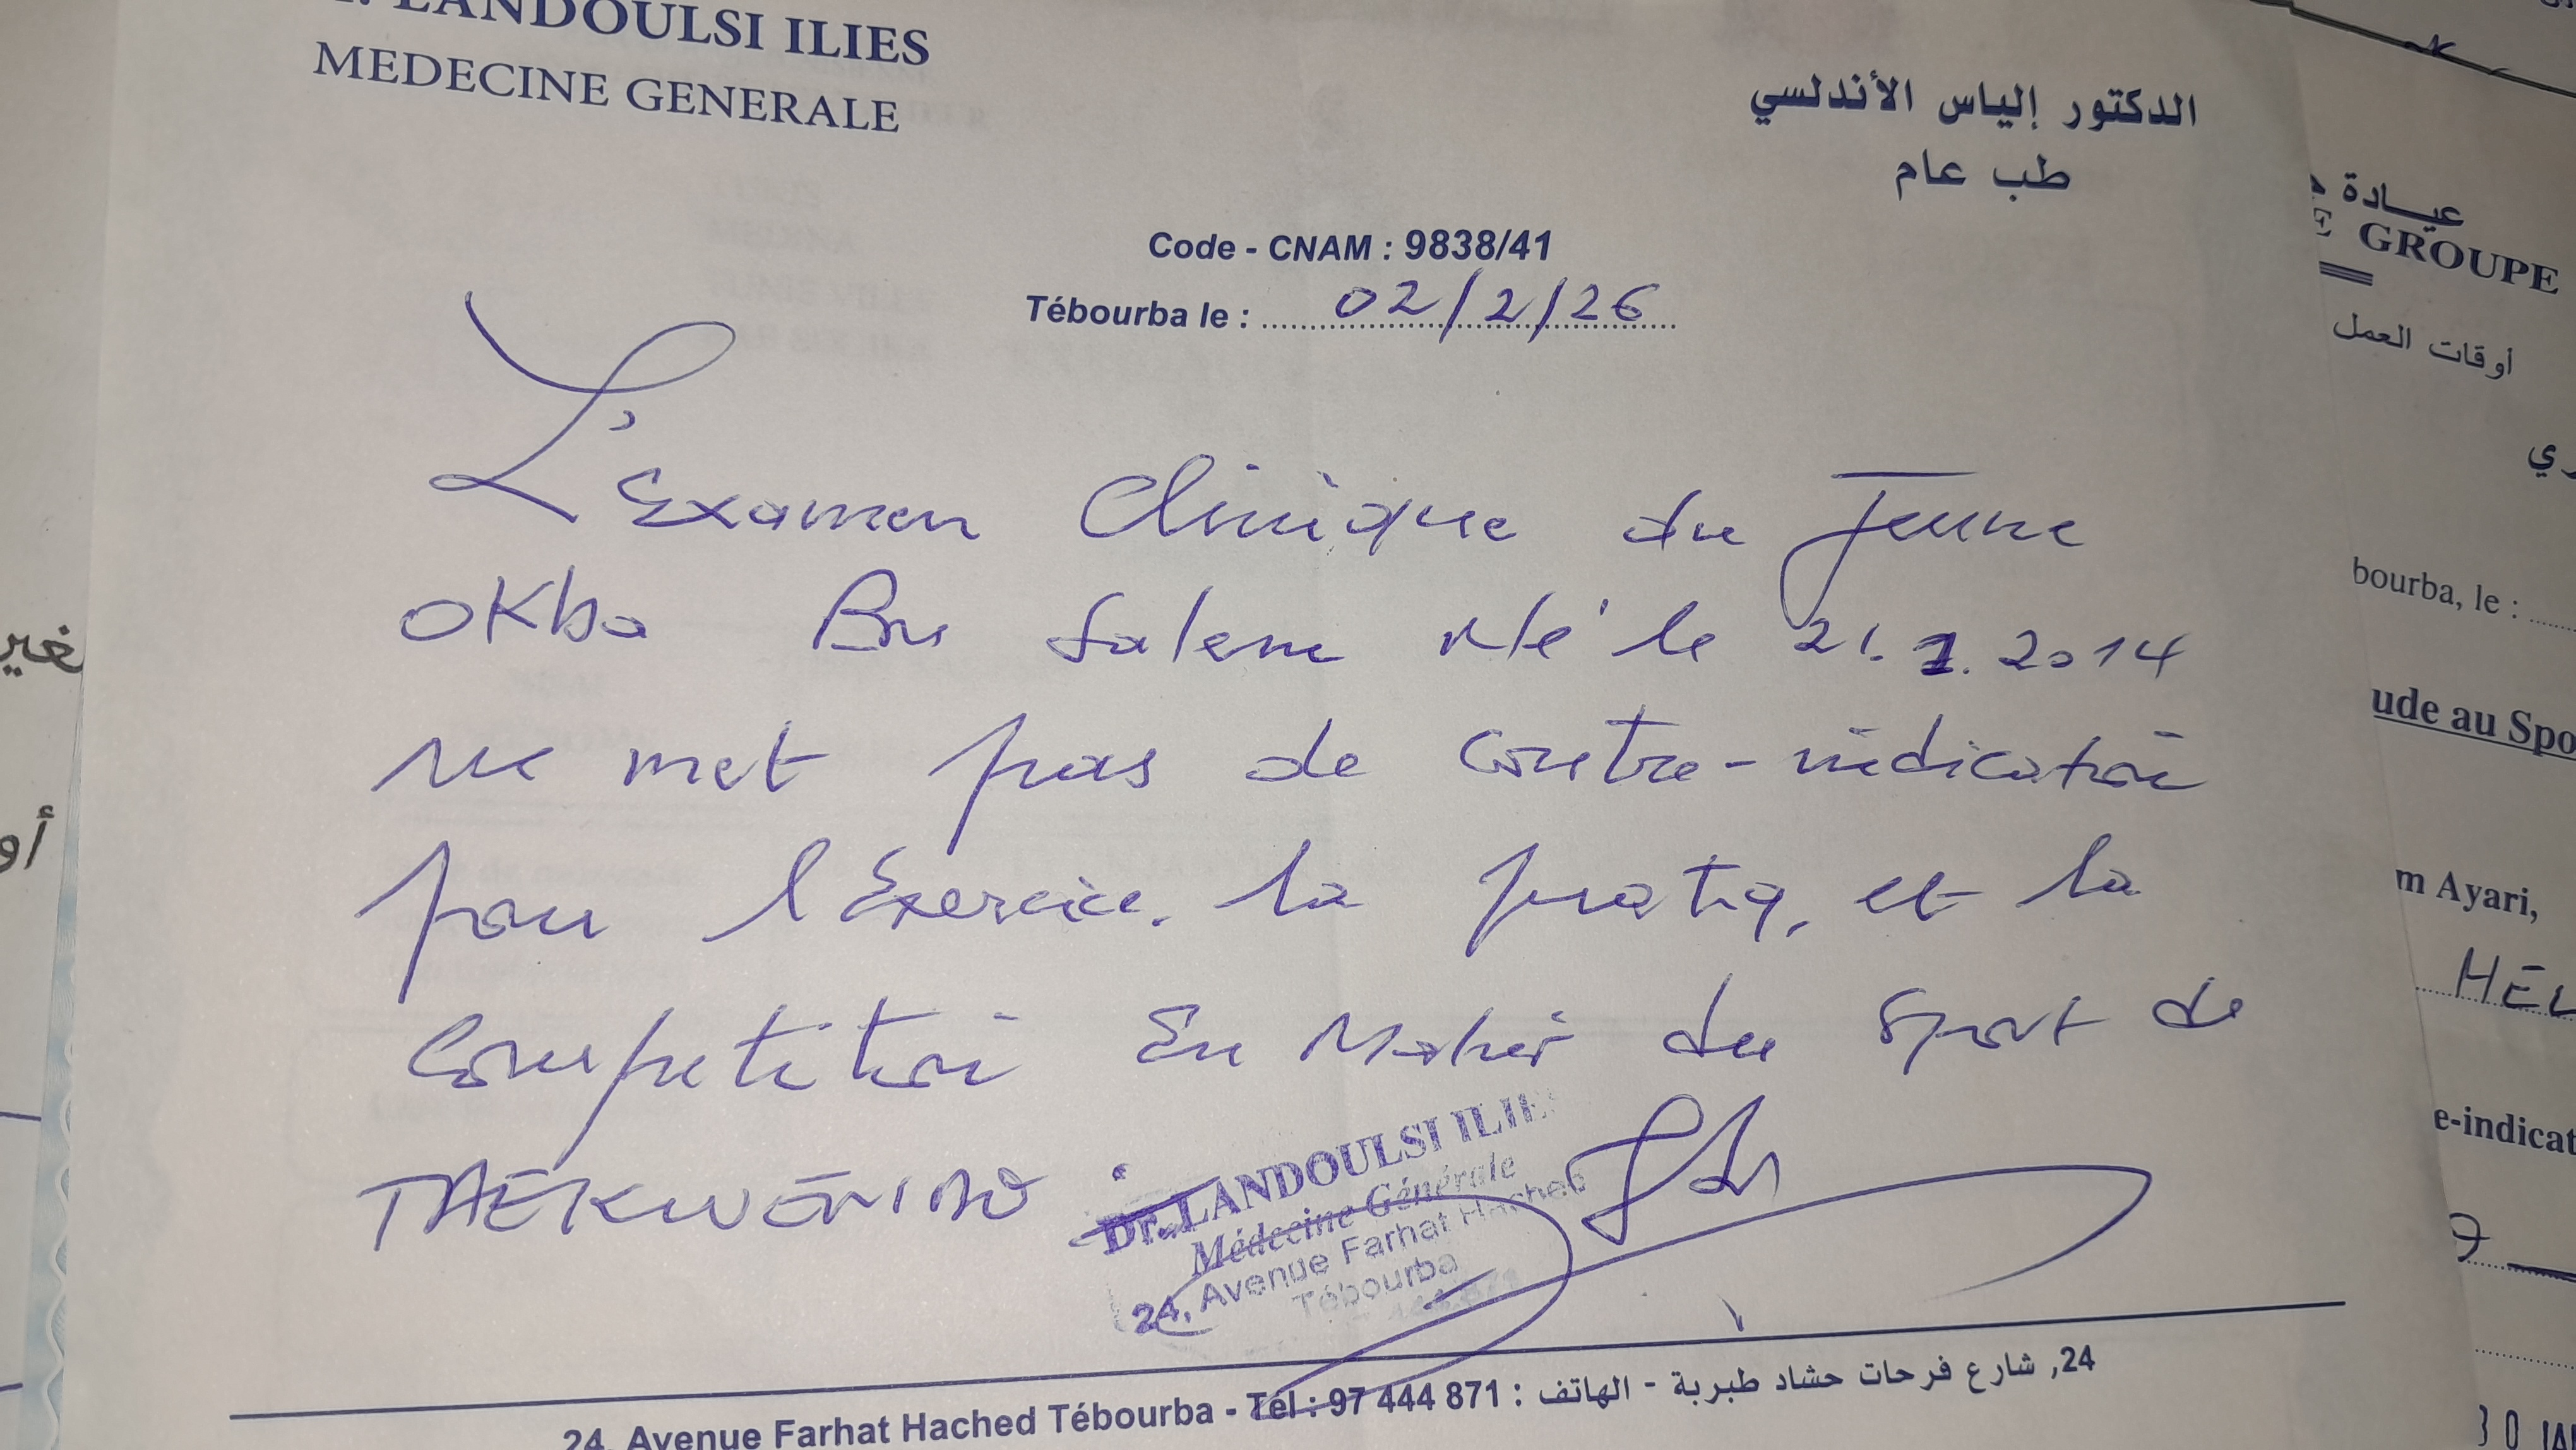 LANDOULSI ILIES
MEDECINE GENERALE
الدكتور إلياس الأندلسي
طب عام
Code - CNAM : 9838/41
Tébourba le : 02/2/26
L'Examen Clinique du Jeune
OKba Ben Salem Né le 21.1.2014
ne met pas de contre-indication
pour l'Exercice. la pratiq, et la
Competition En Matier du Sport de
TAEKWENDO
Dr. LANDOULSI ILIE
Médecine Générale
24, Avenue Farhat Hached
Tébourba
24, شارع فرحات حشاد طبربة - الهاتف :
24, Avenue Farhat Hached Tébourba - Tél : 97 444 871
عيادة
GROUPE
أوقات العمل
bourba, le :
ude au Spo
m Ayari,
HEL
e-indicat
30